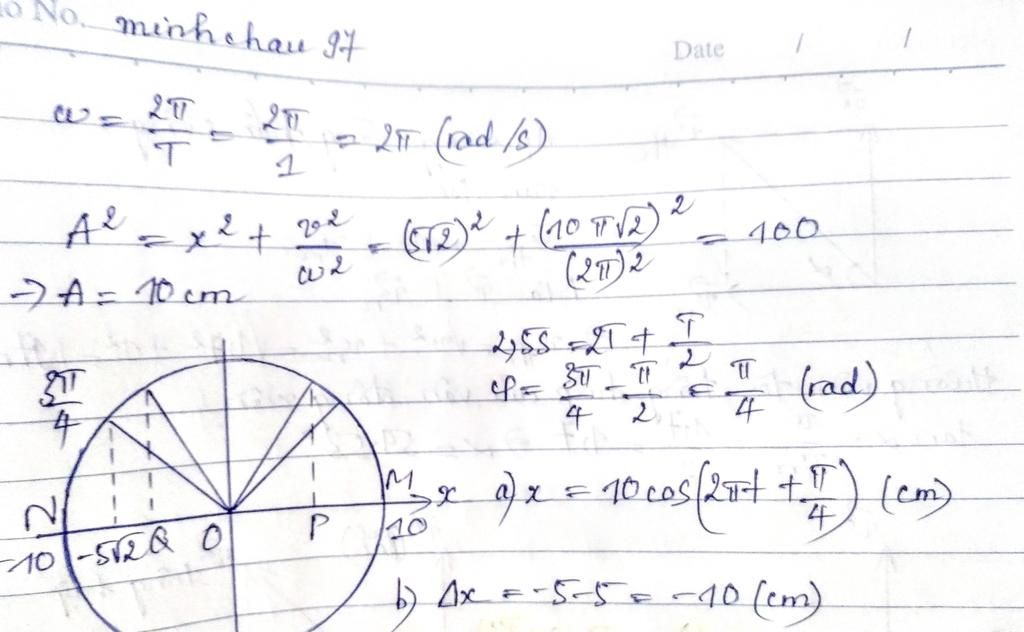 No. minhchau 97
Date / /
ω = 2π/T = 2π/1 = 2π (rad/s)
A² = x² + v²/ω² = (5√2)² + (10π√2)²/(2π)² = 100
→ A = 10 cm
2,5s = 2T + T/2
φ = 3π/4 - π/2 = π/4 (rad)
3π/4
N -10 -5√2 Q O P M 10 x
a) x = 10cos(2πt + π/4) (cm)
b) Δx = -5-5 = -10 (cm)